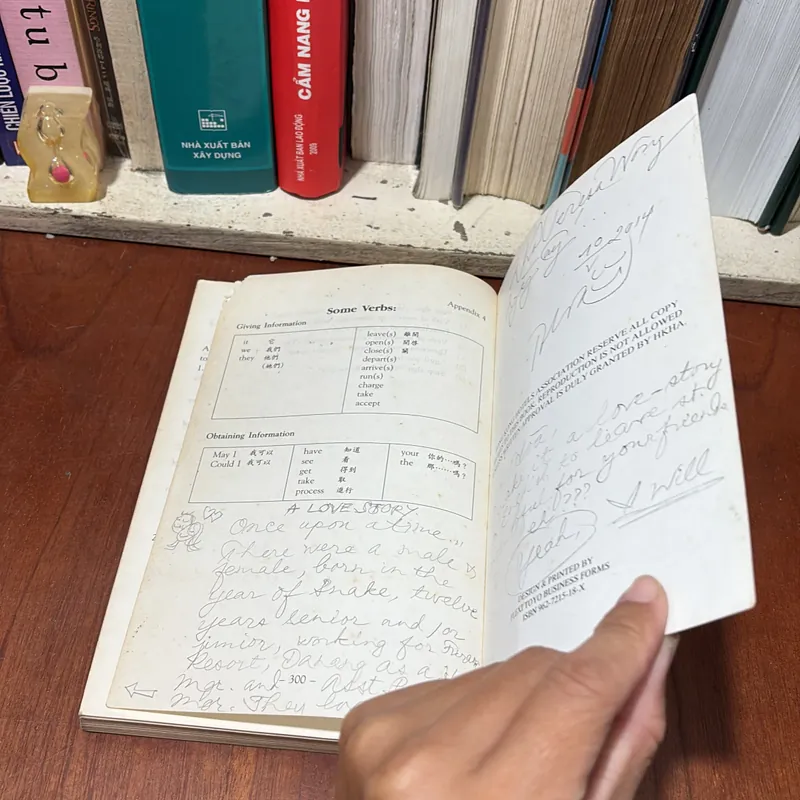 tu b
CHIẾN LƯỢC
NHÀ XUẤT BẢN
XÂY DỰNG
CẨM NANG
NHÀ XUẤT BẢN LAO ĐỘNG
2005
Some Verbs:
Appendix 4
Giving Information
it 它
we 我們
they 他們
(她們)
leave(s) 離開
open(s) 開啓
close(s) 關
depart(s)
arrive(s)
run(s)
charge
take
accept
Obtaining Information
May I 我可以
Could I 我可以
have 知道
see 看
get 得到
take 取
process 進行
your 你的…嗎?
the 那……嗎?
A LOVE STORY.
Once upon a time...
There were a male &
female, born in the
Year of Snake, twelve
years senior and/or
junior, working for
Resort, Danang as a
Mgr. and Asst.
Mgr. They
- 300 -
Teresa Wong
10 2014
ASSOCIATION RESERVE ALL COPY
THIS BOOK. REPRODUCTION IS NOT ALLOWED
APPROVAL IS DULY GRANTED BY HKHA.
a love-story
to leave st.
for your friends
Yeah,
A Will
DESIGN & PRINTED BY
TOYO BUSINESS FORMS
ISBN 962-7215-18-X